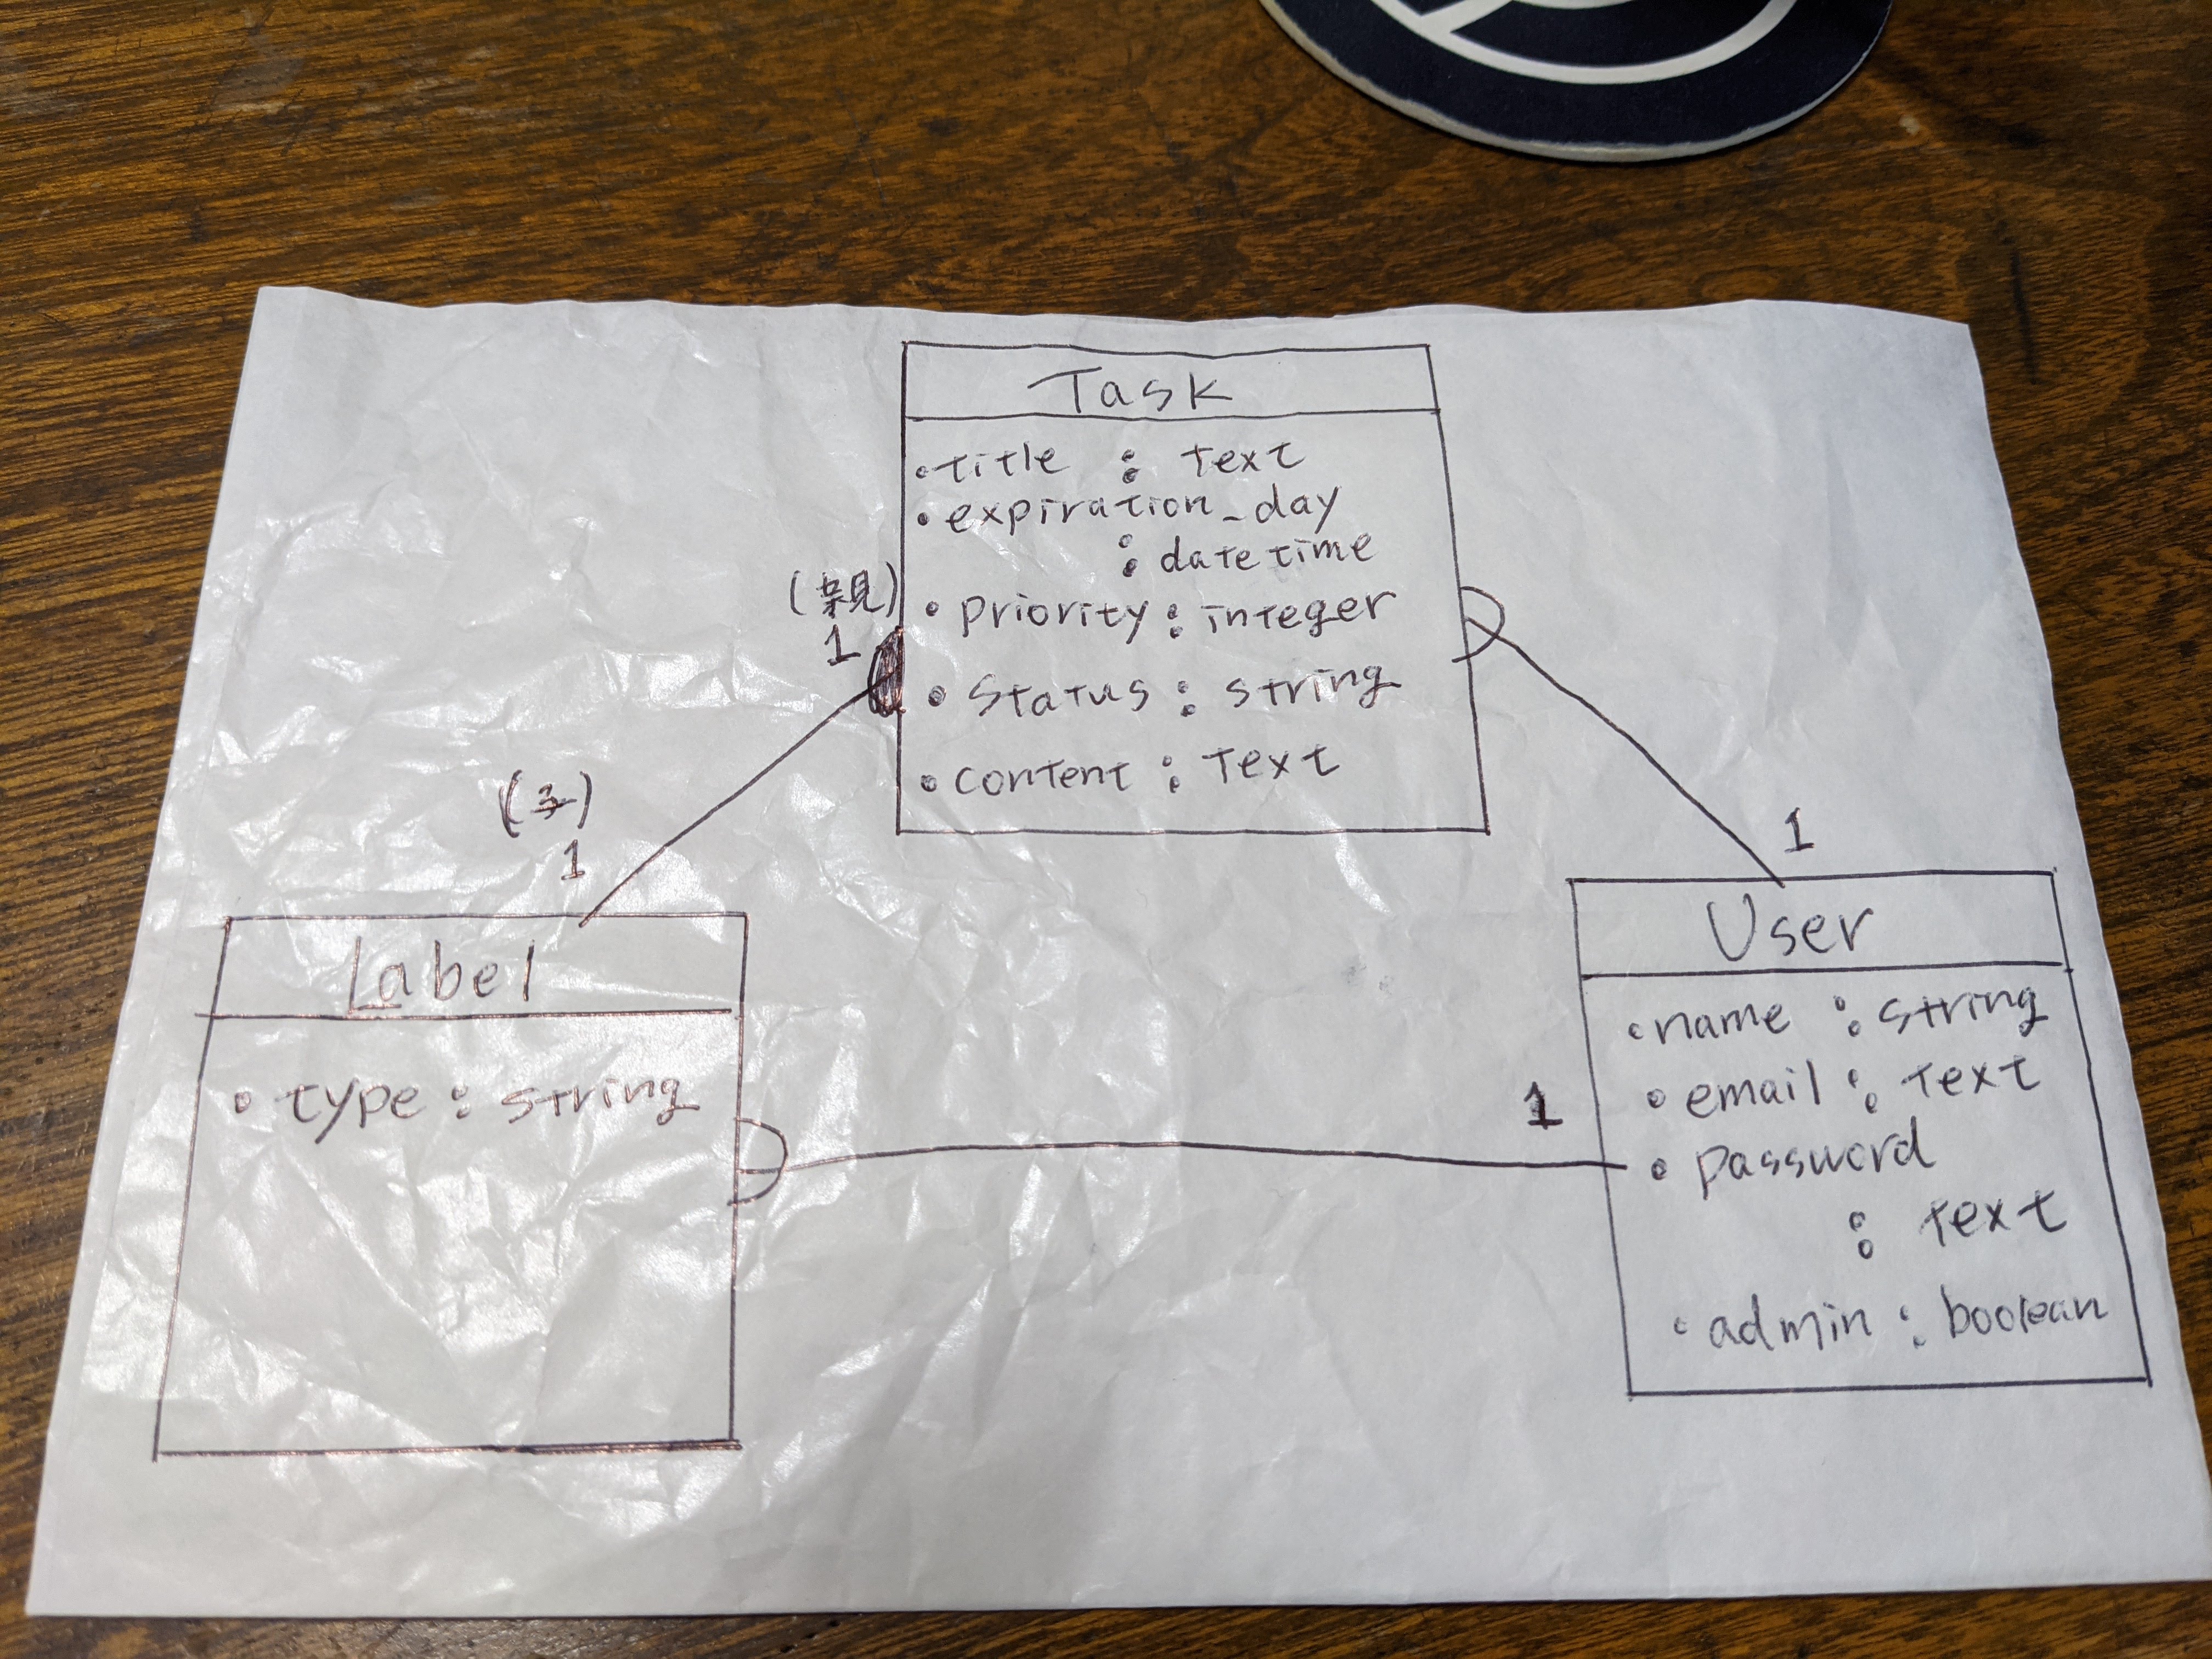 Task
・title : text
・expiration_day
: datetime
・priority : integer
・status : string
・content : text
(親)
1
(子)
1
Label
・type : string
1
User
・name : string
・email : text
・password
: text
・admin : boolean
1